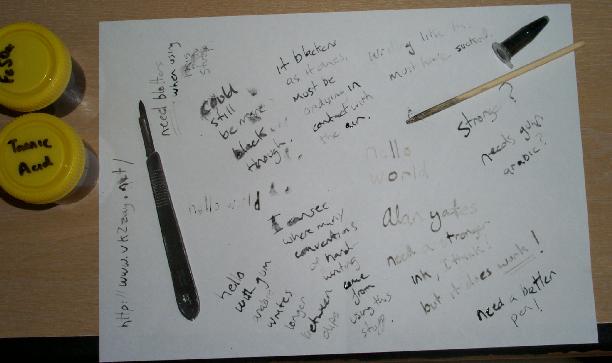 FeSO4
Tannic
Acid
http://www.vk2zay.net/
need blotters
when using
this
stuff
could
still
be more
black
though.
It blackens
as it dries,
must be
oxidysing in
contact with
the air.
Writing like this
must have sucked.
Stronger?
needs gum
arabic?
hello
world
hello world
I can see
where many
conventions
of hand
writing
come
from
using this
stuff.
Alan Yates
need a stronger
ink, I think!
but it does work!
need a better
pen!
hello
with gum
arabic
writes
longer
between
dips